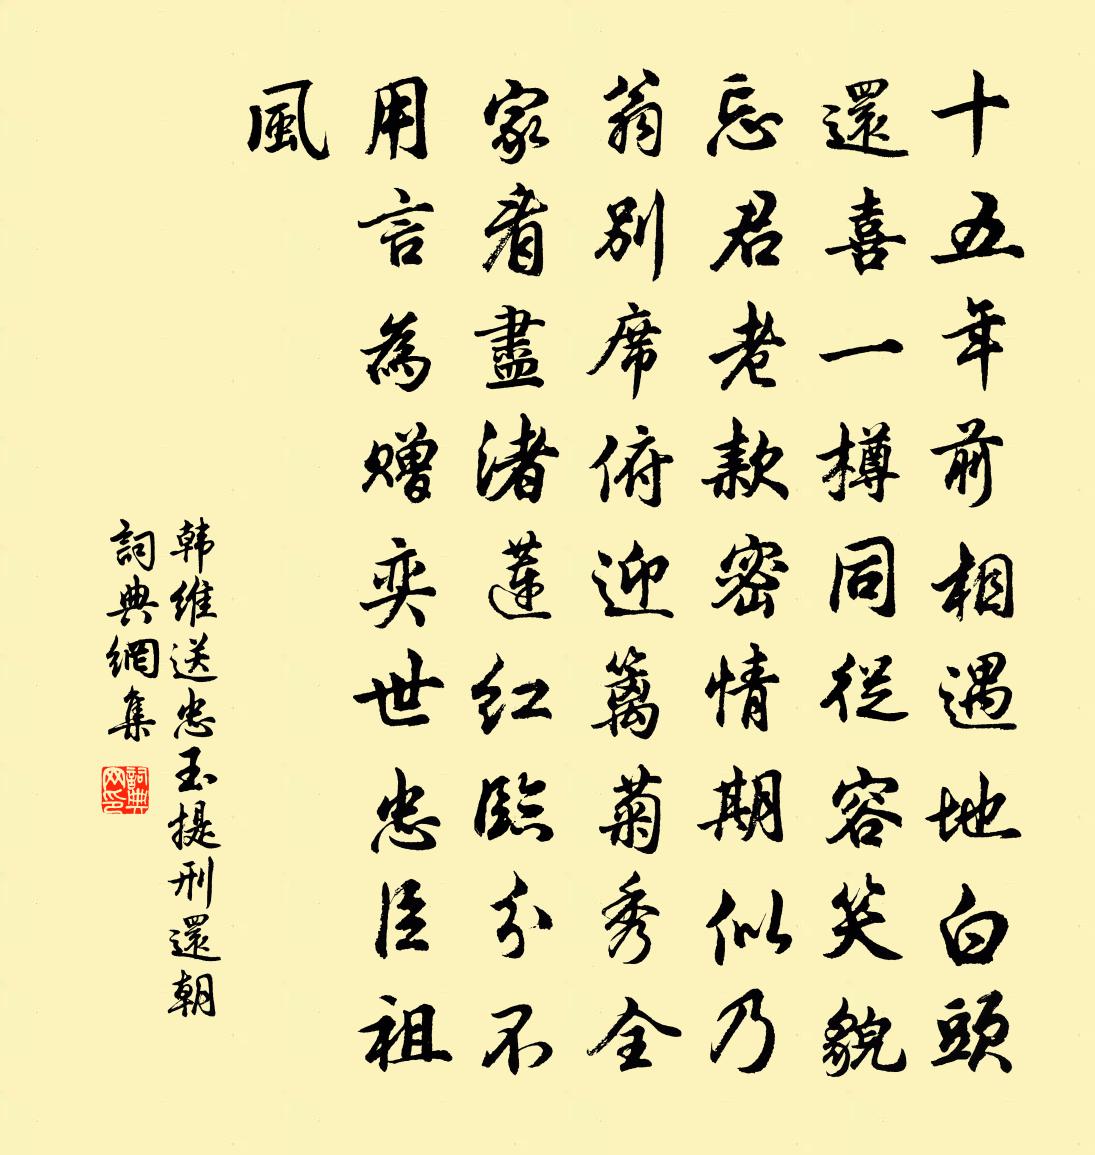 十五年前相遇地白頭
還喜一樽同從容笑貌
忘君老款密情期似乃
翁別席俯迎籬菊秀全
家看盡渚蓮红臨分不
用言為贈奕世忠臣祖
風
韩維送忠玉提刑還朝
詞典網集
詞典网印